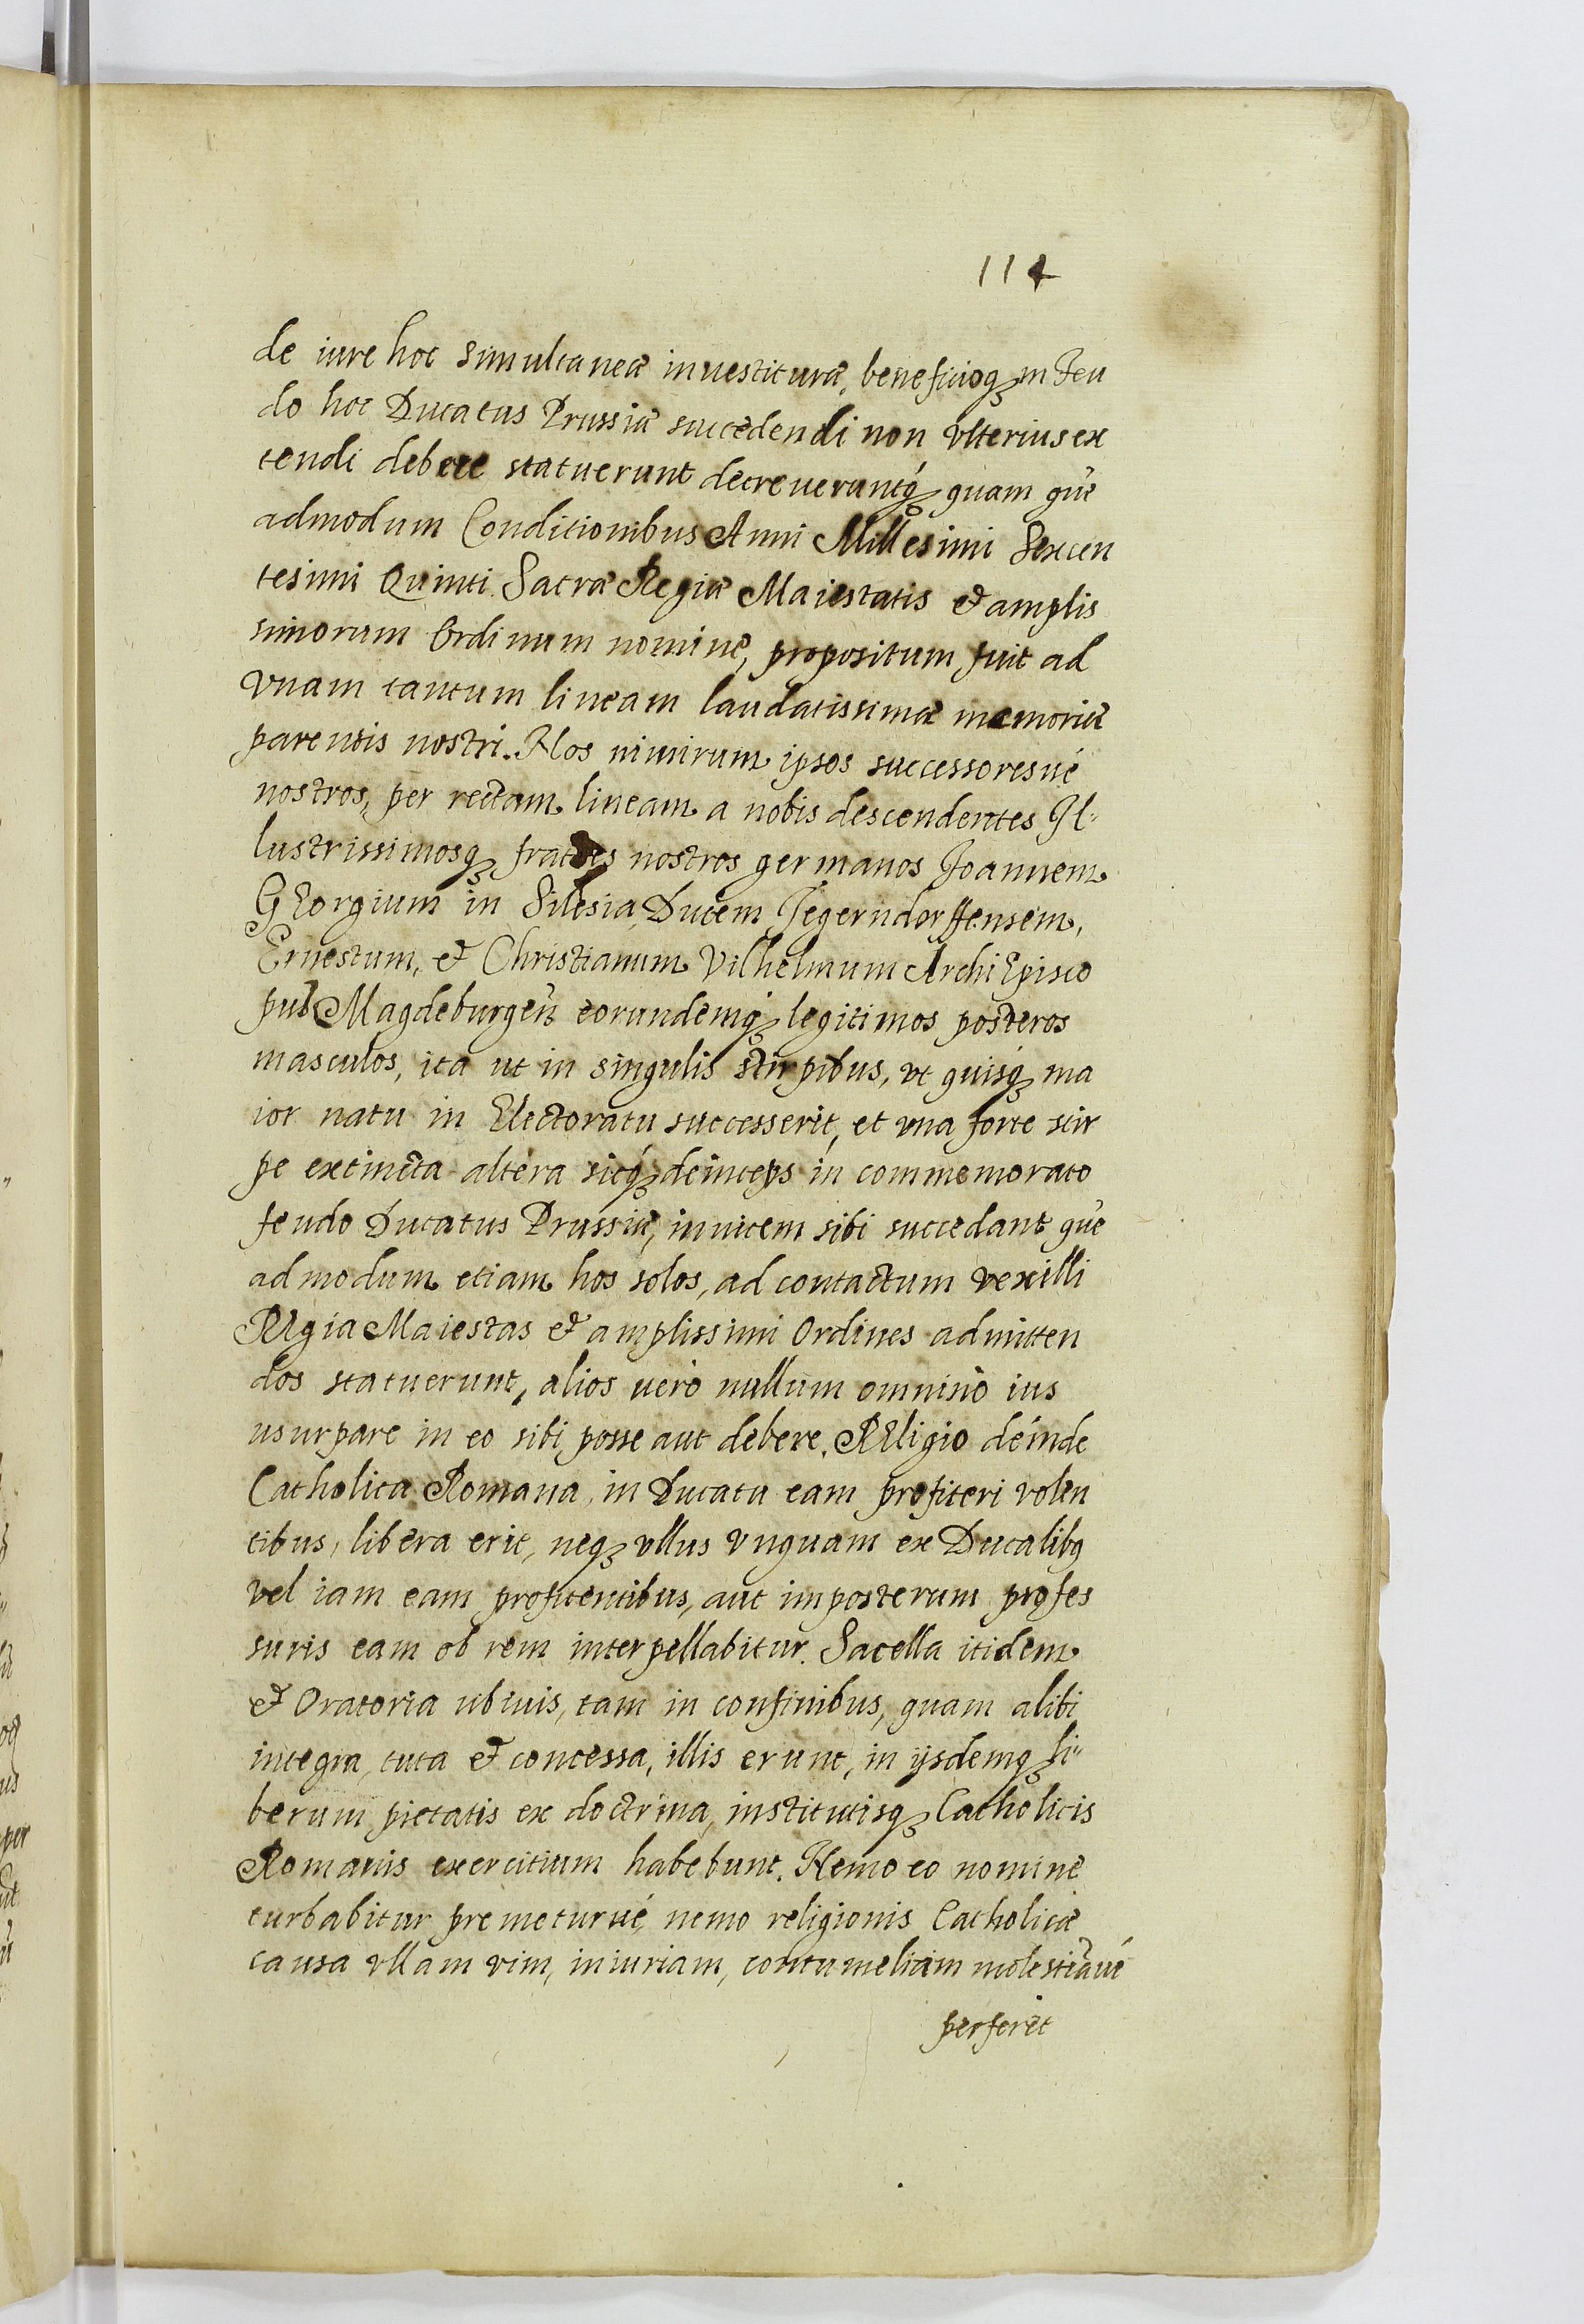 114
de iure hoc simultaneæ inuestituræ, beneficioq; in Feu
do hoc Ducatus Prussiæ succedendi non vlterius ex
tendi debere statuerunt decreueruntq́; quam quē
admodum Conditionibus Anni Millesimi Sexcen
tesimi Quinti Sacræ Regiæ Maiestatis et amplis
simorum Ordinum nomine, propositum fuit ad
vnam tantum lineam laudatissimæ memoriæ
parentis nostri. Nos nimirum ipsos successoresué
nostros, per rectam lineam a nobis descendentes Il-
lustrissimosq; fratres nostros germanos Joannem
GEorgium in Silesia Ducem Jegerndorffensem,
Ernestum, et Christianum Vilhelmum ArchiEpisco
pū Magdeburgeñ eorundemq́; legitimos posteros
masculos, ita ut in singulis stirpibus, vt quisq́; ma
ior natu in Electoratu successerit, et vna forte stir
pe extincta altera sicq́; deinceps in commemorato
feudo Ducatus Prussiæ, inuicem sibi succedant quē
admodum etiam hos solos, ad contactum vexilli
REgia Maiestas et amplissimi Ordines admitten
dos statuerunt, alios uerò nullum omninò ius
usurpare in eo sibi posse aut debere. REligio deinde
Catholica Romana, in Ducatu eam profiteri volen
tibus, libera erit, neq; vllus vnquam ex Ducalibq
vel iam eam profitentibus, aut imposterum profes
suris eam ob rem interpellabitur. Sacella itidem
et Oratoria ubiuis, tam in confinibus, quam alibi
integra, tuta et concessa, illis erunt, in ijsdemq; li-
berum pietatis ex doctrina, institutisq; Catholicis
Romanis exercitium habebunt. Nemo eo nomine
turbabitur premeturué, nemo religionis Catholicæ
causa vllam vim, iniuriam, contumeliam molestiāué
perferet